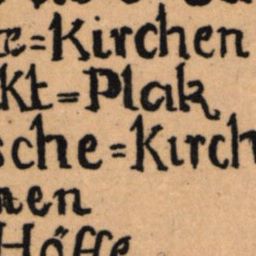 =Kirchen
kt=Plak
sche=Kirch
nen
Höffe